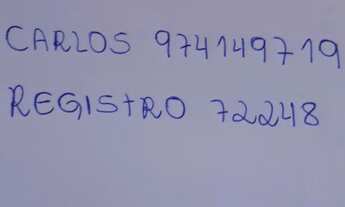 CARLOS 974149719
REGISTRO 72248